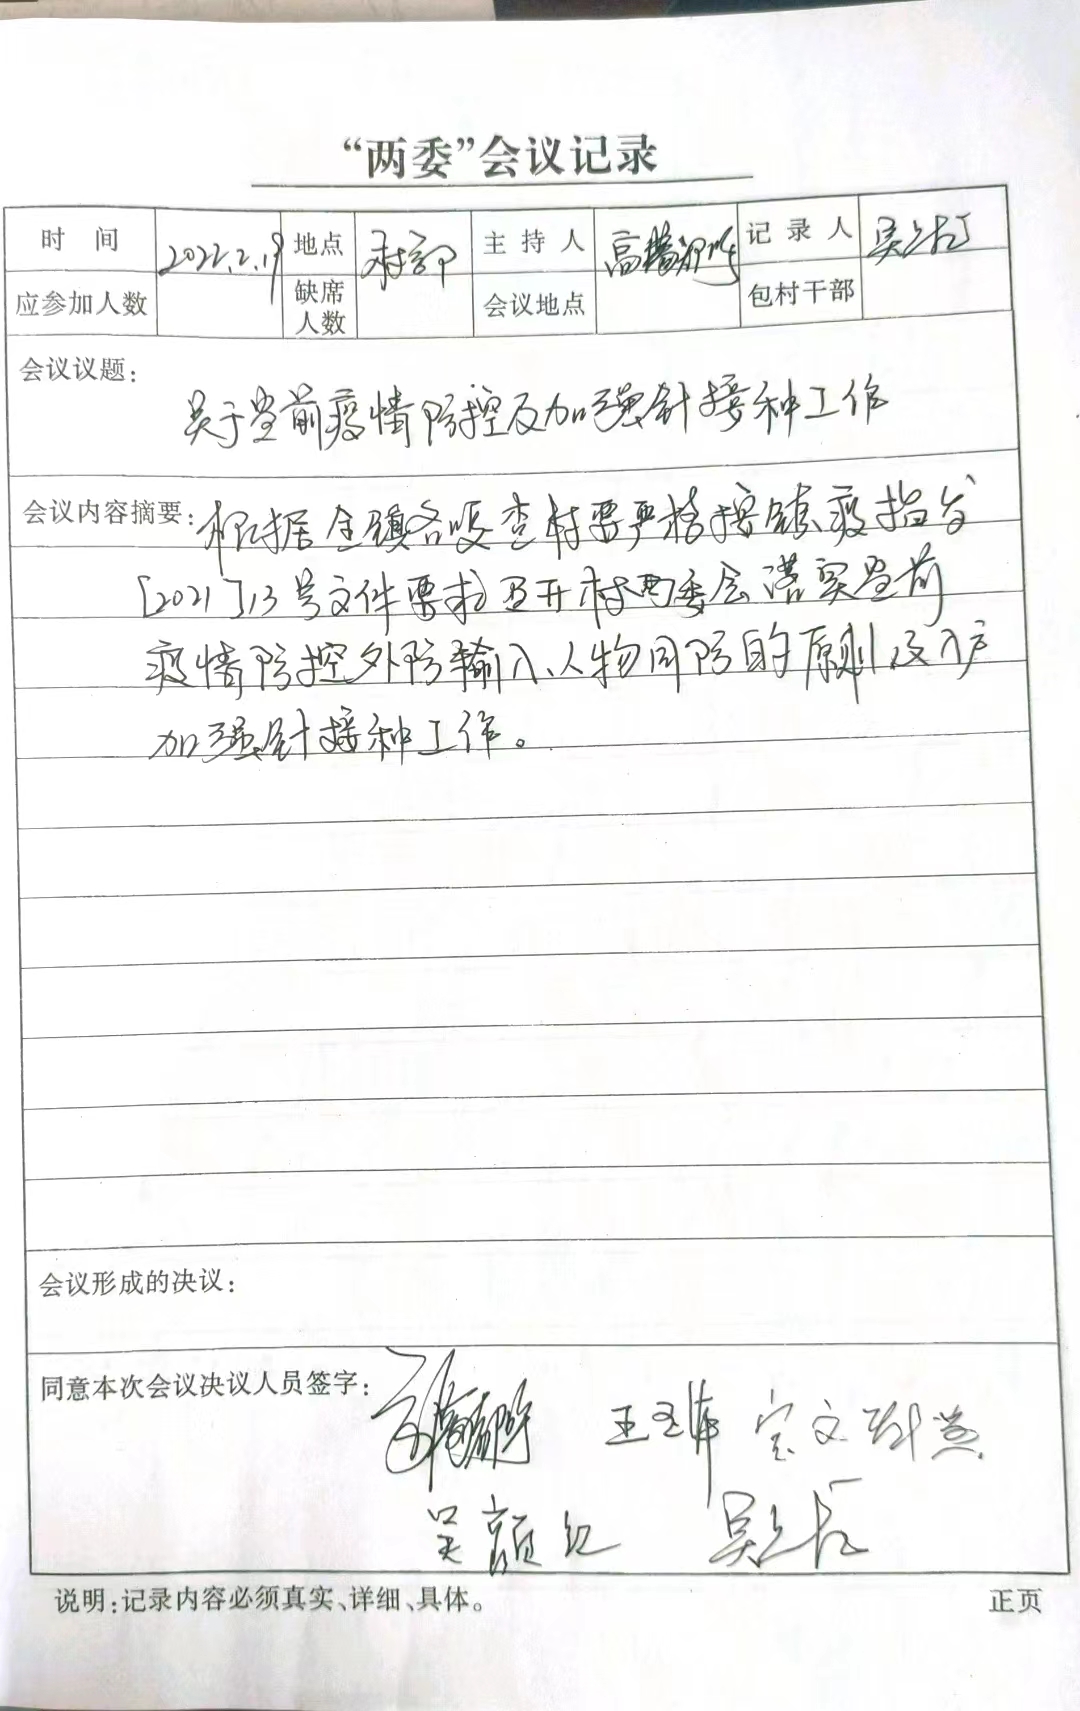 “两委”会议记录
时 间 2022.2.19 地点 村部 主 持 人 高 记 录 人 吴
应参加人数 缺席人数 会议地点 包村干部
会议议题：
关于当前疫情防控及加强针接种工作
会议内容摘要：根据全镇各 查村要严格按镇疫指
[2021]13号文件要求召开村两委会落实当前
疫情防控外防输入、人物同防的原则及入户
加强针接种工作。
会议形成的决议：
同意本次会议决议人员签字：
王 文
吴颜红 吴
说明：记录内容必须真实、详细、具体。 正页